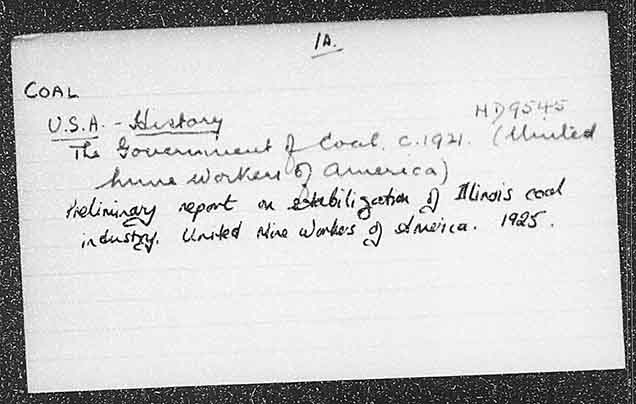 1A.
COAL
U.S.A. - History HD9545
The Government of Coal. c.1921. (United
Mine Workers of America)
Preliminary report on stabilization of Illinois coal
industry. United Mine Workers of America. 1925.